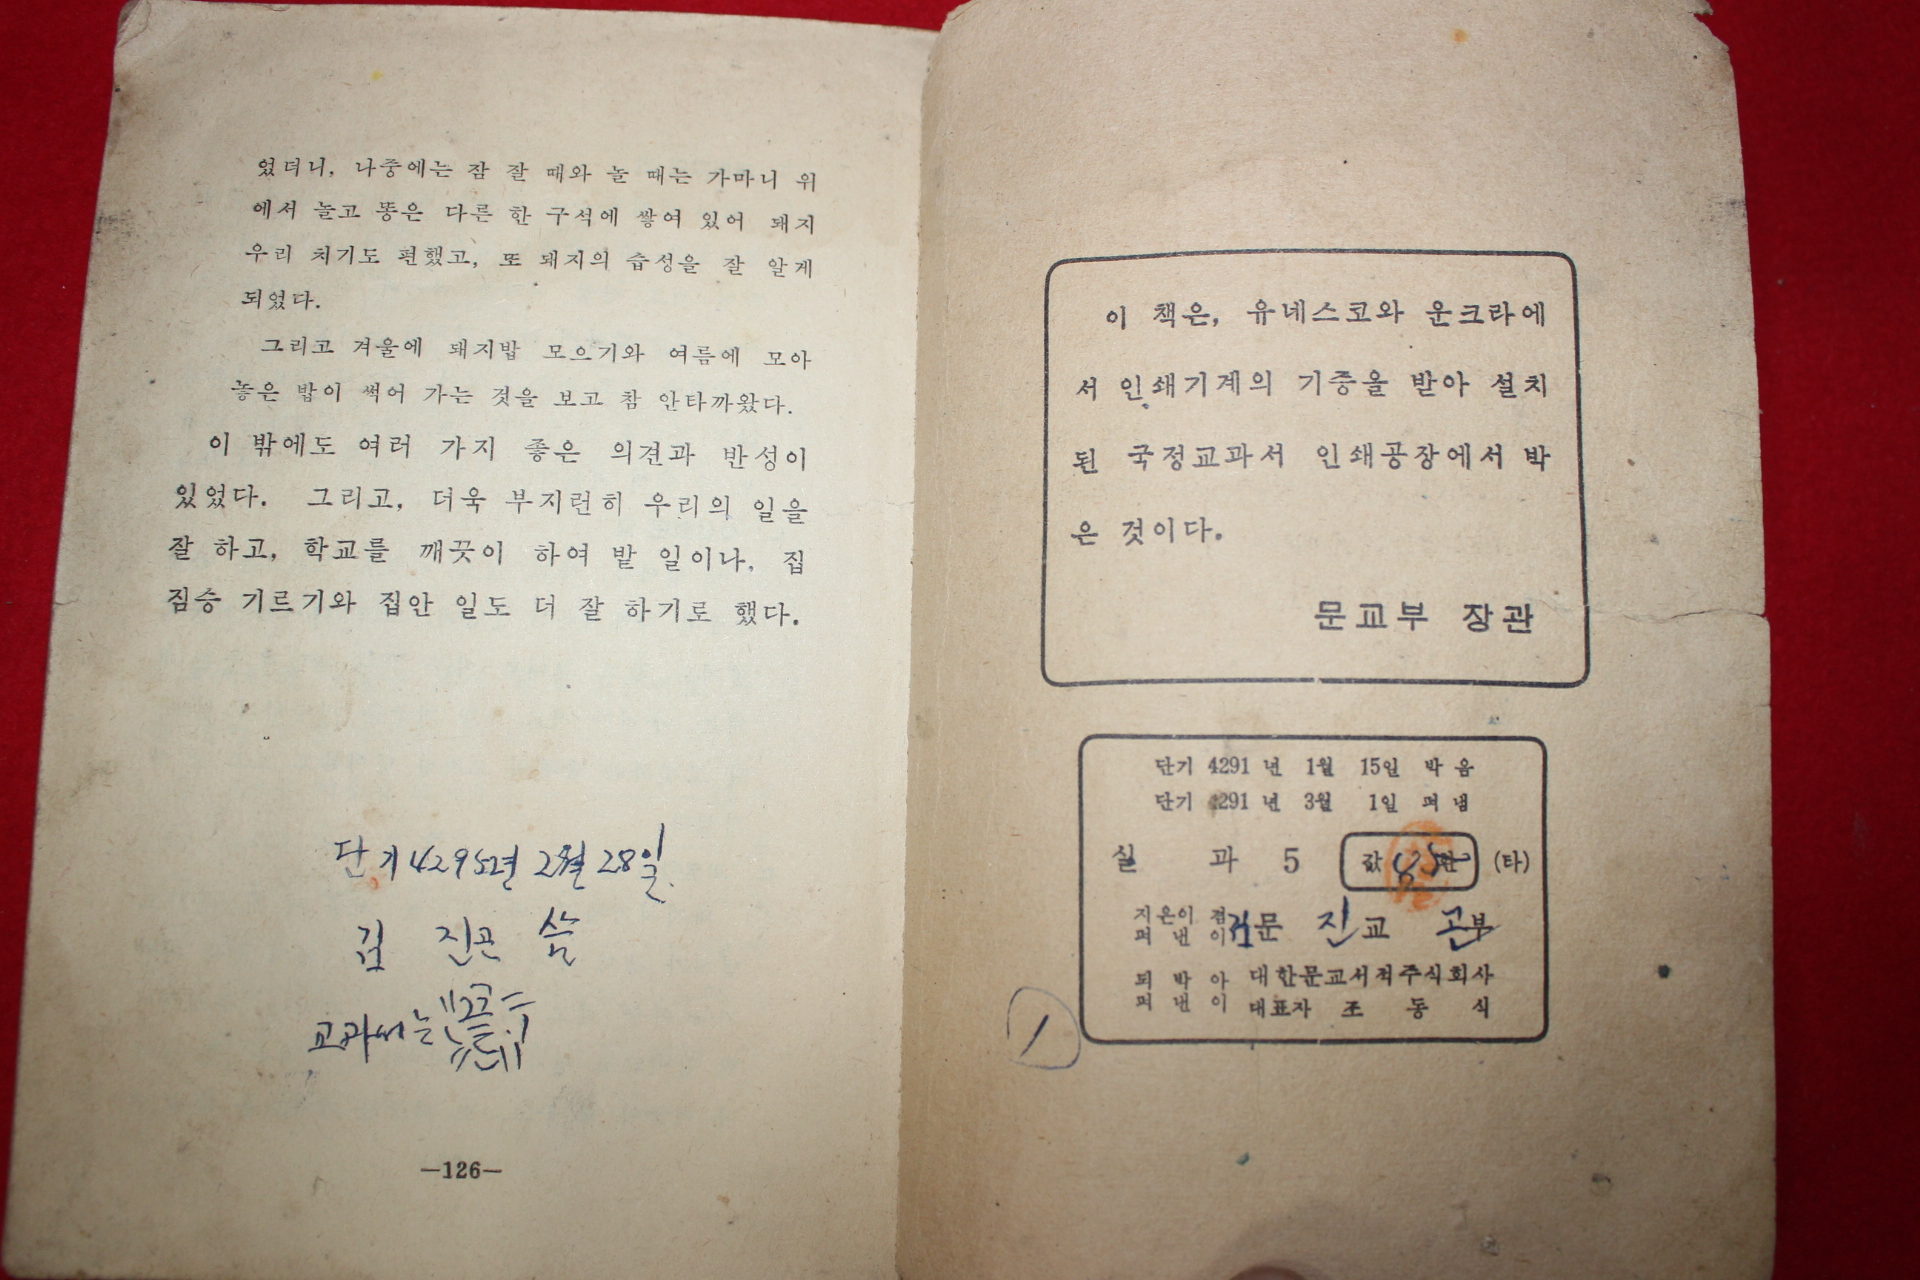 었더니, 나중에는 잠 잘 때와 놀 때는 가마니 위
에서 놀고 똥은 다른 한 구석에 쌓여 있어 돼지
우리 치기도 편했고, 또 돼지의 습성을 잘 알게
되었다.
그리고 겨울에 돼지밥 모으기와 여름에 모아
놓은 밥이 썩어 가는 것을 보고 참 안타까왔다.
이 밖에도 여러 가지 좋은 의견과 반성이
있었다. 그리고, 더욱 부지런히 우리의 일을
잘 하고, 학교를 깨끗이 하여 밭 일이나, 집
짐승 기르기와 집안 일도 더 잘 하기로 했다.
단기 4295년 2월 28일
김 진곤 씀
교과서는
—126—
이 책은, 유네스코와 운크라에
서 인쇄기계의 기증을 받아 설치
된 국정교과서 인쇄공장에서 박
은 것이다.
문교부 장관
단기 4291 년 1월 15일 박음
단기 4291 년 3월 1일 펴냄
실 과 5 값 환 (타)
지은이 겸
펴낸이 문교부
김 진 곤
되박아 대한문교서적주식회사
펴낸이 대표자 조동식
1